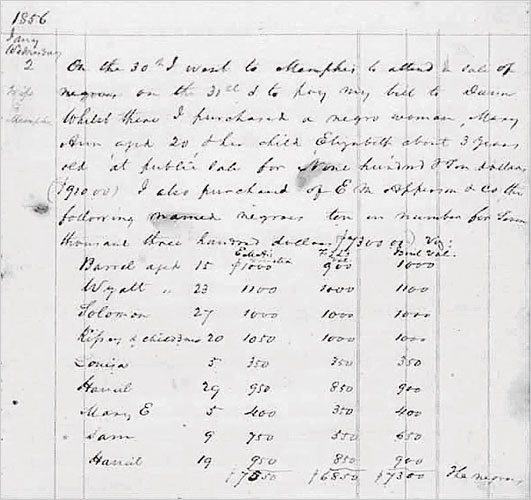 1856
Jany
Wednesday
2 On the 30th I went to Memphis to attend a sale of
negroes on the 31st & to pay my bill to Dunn
Trip to Memphis
Whilst there I purchased a negro woman, Mary
Ann aged 20 & her child Elizabeth about 3 years
old at public sale for Nine hundred & Ten dollars
($910 00) I also purchased of E M Apperson & Co the
following named negroes ten in number for Seven
thousand three hundred dollars ($7300 00) Viz:
Barrel aged 15 $1000 900 1000
Wyatt " 23 1100 1000 1100
Solomon 27 1000 1000 1000
Kipsey & child 3 mo 20 1050 1000 1000
Louisa 5 350 350 350
Harriet 29 950 850 900
Mary E 5 400 350 400
Sam 9 750 550 650
Harriet 19 950 850 900
$7550 $6850 $7300 The negroes